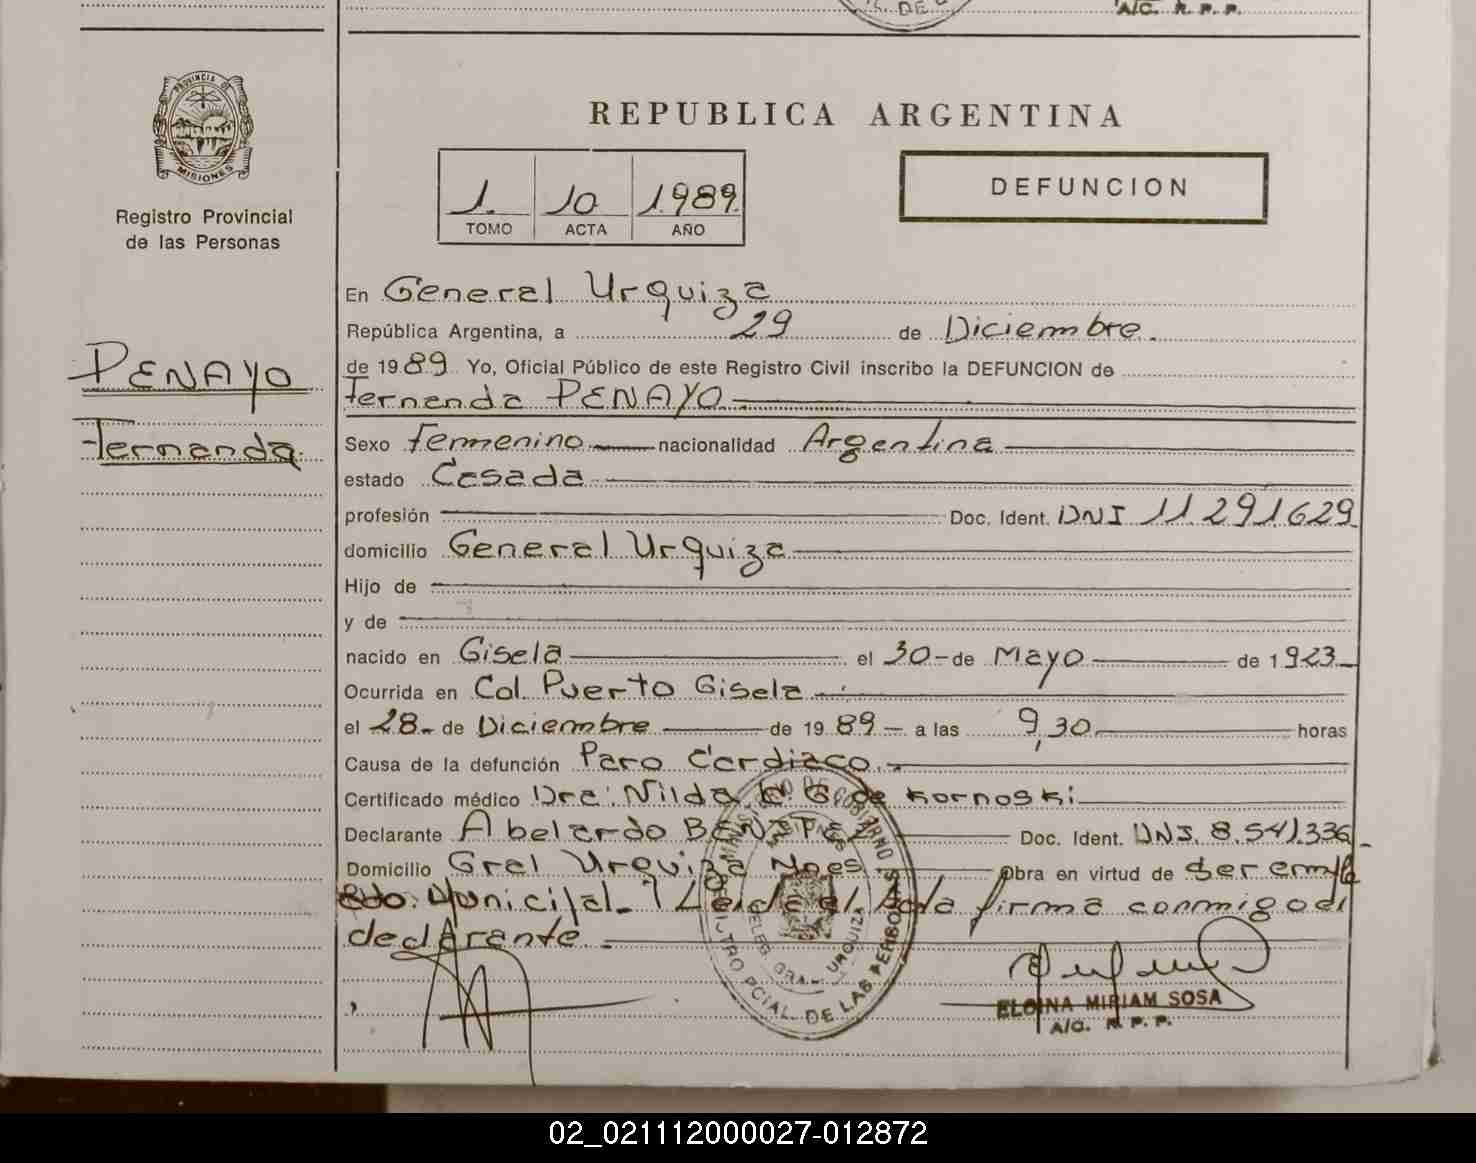 A/C. R. P. P.
PROVINCIA DE
MISIONES
Registro Provincial
de las Personas
PENAYO
Fernanda
REPUBLICA ARGENTINA
1. 10 1989
TOMO ACTA AÑO
DEFUNCION
En General Urquiza
República Argentina, a 29 de Diciembre
de 1989 Yo, Oficial Público de este Registro Civil inscribo la DEFUNCION de
Fernanda PENAYO
Sexo Femenino nacionalidad Argentina
estado Casada
profesión Doc. Ident. DNI 11 291629
domicilio General Urquiza
Hijo de
y de
nacido en Gisela el 30 de Mayo de 1923
Ocurrida en Col. Puerto Gisela
el 28 de Diciembre de 1989 a las 9,30 horas
Causa de la defunción Paro Cardiaco
Certificado médico Dra. Nilda G. de Kornoski
Declarante Abelardo BENITEZ Doc. Ident. DNI. 8.541.336
Domicilio Gral Urquiza Mnes Obra en virtud de Ser emplea
do. Municipal. Leida el Acta firma conmigo el
declarante
MINISTERIO DE GOBIERNO
REGISTRO PCIAL. DE LAS PERSONAS
DELEG. GRAL. URQUIZA
ELOINA MIRIAM SOSA
A/C. R. P. P.
02_021112000027-012872